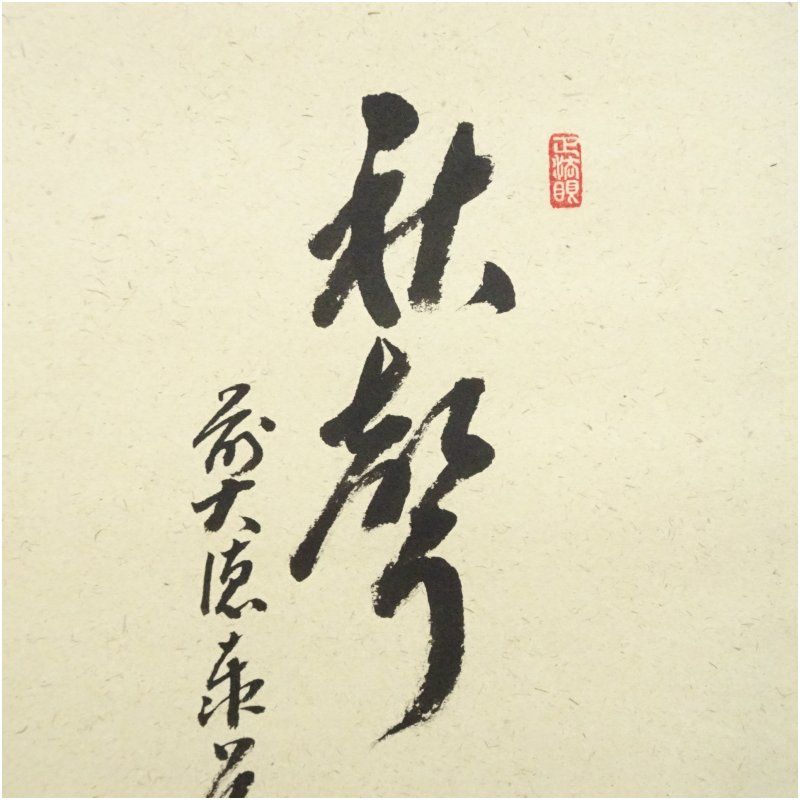 正法眼
秋聲
前大徳泰